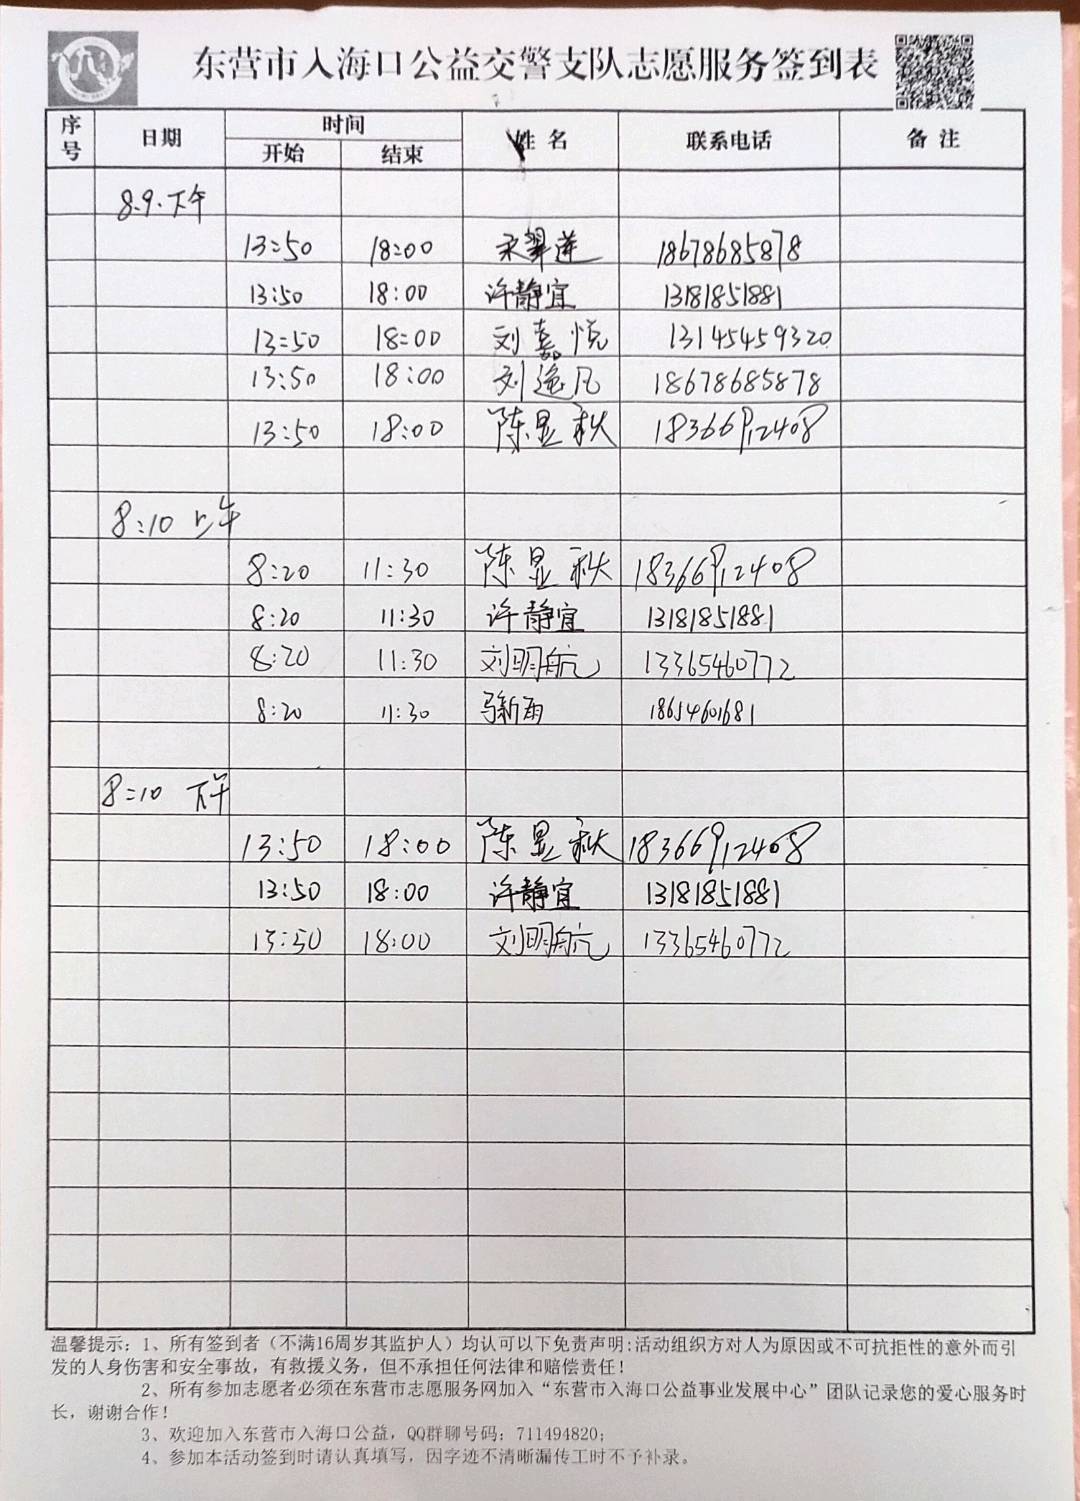 东营市入海口公益交警支队志愿服务签到表
序号 日期 时间 姓名 联系电话 备注
开始 结束
8.9.下午
13:50 18:00 翠莲 18678685878
13:50 18:00 许静宜 13181851881
13:50 18:00 刘嘉悦 13145459320
13:50 18:00 刘逸凡 18678685878
13:50 18:00 陈显秋 18366912408
8:10 上午
8:20 11:30 陈显秋 18366912408
8:20 11:30 许静宜 13181851881
8:20 11:30 刘明航 13365460772
8:20 11:30 马新雨 18654601681
8:10 下午
13:50 18:00 陈显秋 18366912408
13:50 18:00 许静宜 13181851881
13:50 18:00 刘明航 13365460772
温馨提示：1、所有签到者（不满16周岁其监护人）均认可以下免责声明:活动组织方对人为原因或不可抗拒性的意外而引
发的人身伤害和安全事故，有救援义务，但不承担任何法律和赔偿责任！
2、所有参加志愿者必须在东营市志愿服务网加入“东营市入海口公益事业发展中心”团队记录您的爱心服务时
长，谢谢合作！
3、欢迎加入东营市入海口公益，QQ群聊号码：711494820；
4、参加本活动签到时请认真填写，因字迹不清晰漏传工时不予补录。